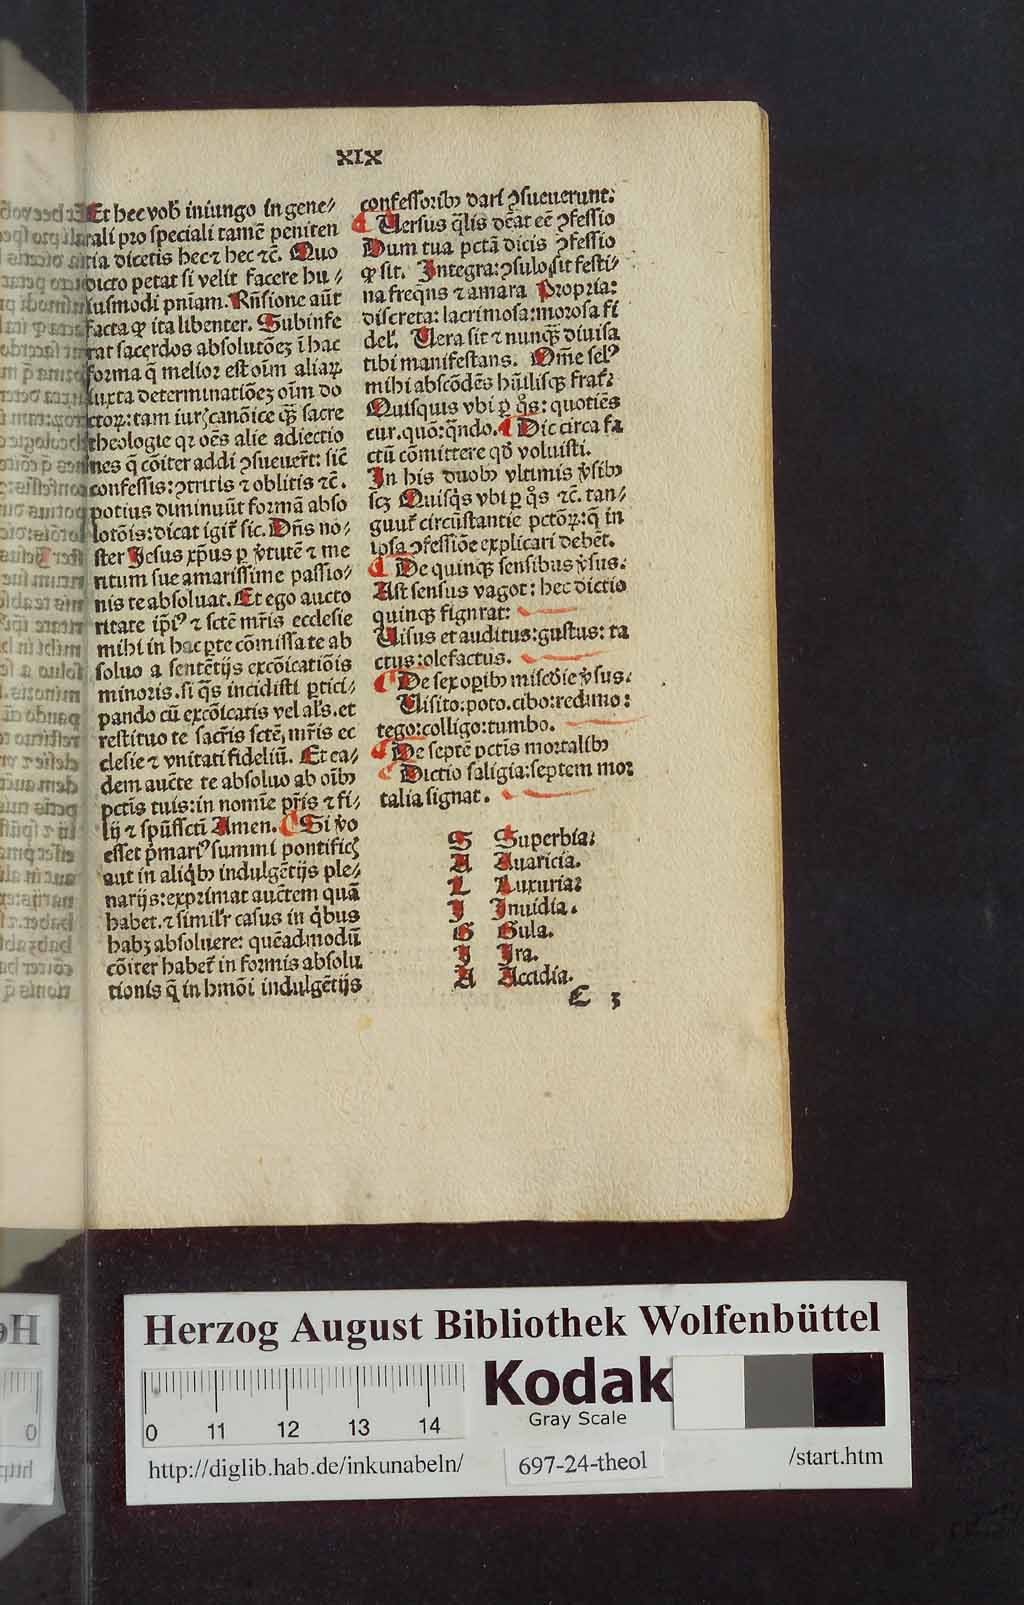 XIX
Et hec vob̃ iniungo in gene⸗
rali pro speciali tamē peniten
tia dicetis hec ⁊ hec ⁊c̄. Quo
dicto petat si velit facere hu⸗
iusmodi pn̄iam. Rn̄sione aūt
facta ꝙ ita libenter. Subinfe
rat sacerdos absolutōeꝫ ī hac
forma q̄ melior est oīm aliaꝝ
iuxta determinatiōeꝫ oīm do
ctoꝝ: tam iur̨ canōice qꝫ̄ sacre
theologie qꝛ oēs alie adiectio
nes q̄ cōiter addi ꝯsueuer̄t: sic̄
confessis: ꝯtritis ⁊ oblitis ⁊c̄.
potius diminuūt formā abso
lotōis: dicat igit̄ sic. Dn̄s no⸗
ster Jesus xp̄us ꝑ v̄tutē ⁊ me
ritum sue amarissime passio⸗
nis te absoluat. Et ego aucto
ritate ip̄iꝰ ⁊ sctē mr̄is ecclesie
mihi in hac ꝑte cōmissa te ab
soluo a sentētijs excōicatiōis
minoris. si q̄s incidisti ꝑtici⸗
pando cū excōicatis vel al̄s. et
restituo te sacr̄is sctē mr̄is ec
clesie ⁊ vnitati fideliū. Et ea⸗
dem auc̄te te absoluo ab oīb̄ꝰ
pctīs tuis: in nomīe pr̄is ⁊ fi⸗
lij ⁊ spūssctī Amen. ¶ Si v̄o
esset p̄mariꝰ summi pontific̨
aut in aliq̇bꝫ indulgētijs ple⸗
narijs: exprimat auc̄tem quā
habet. ⁊ simil̄r casus in q̇bus
habꝫ absoluere: quēadmodū
cōiter habet̄ in formis absolu
tionis q̄ in hmōi indulgētijs
confessoribꝫ dari ꝯsueuerunt:
¶ Uersus q̄lis dēat eē ꝯfessio
Dum tua pctā dicis ꝯfessio
ꝙ sit. Integra: ꝯsulo sit festi⸗
na freq̄ns ⁊ amara Propria:
discreta: lacrimosa: morosa fi
del̄. Uera sit ⁊ nunqꝫ̄ diuisa
tibi manifestans. Om̄e sel̄ꝰ
mihi abscōdēs hūilisqꝫ frat̄:
Quisquis vbi ꝑ q̊s: quotiēs
cur. quō: qn̄do. ¶ Dic circa fa
ctū cōmittere qd̄ voluisti.
In his duobꝫ vltimis v̄sibꝫ
scꝫ Quisq̇s vbi ꝑ q̊s ⁊c̄. tan⸗
gunt̄ circūstantie pctōꝝ: q̄ in
ipsa ꝯfessiōe explicari debēt.
¶ De quinqꝫ sensibus v̄sus.
Ast sensus vagot: hec dictio
quinqꝫ fignrat:
Uisus et auditus: gustus: ta
ctus: olefactus.
¶ De sex oꝑibꝫ miscd̄ie v̄sus.
Uisito: poto. cibo: redimo:
tego: colligo: tumbo.
¶ De septē pctīs mortalibꝫ
¶ Dictio saligia: septem mor
talia signat.
S Superbia:
A Auaricia.
L Luxuria:
I Inuidia.
G Gula.
I Ira.
A Accidia.
C 3
Herzog August Bibliothek Wolfenbüttel
0 11 12 13 14
Kodak
Gray Scale
http://diglib.hab.de/inkunabeln/
697-24-theol
/start.htm